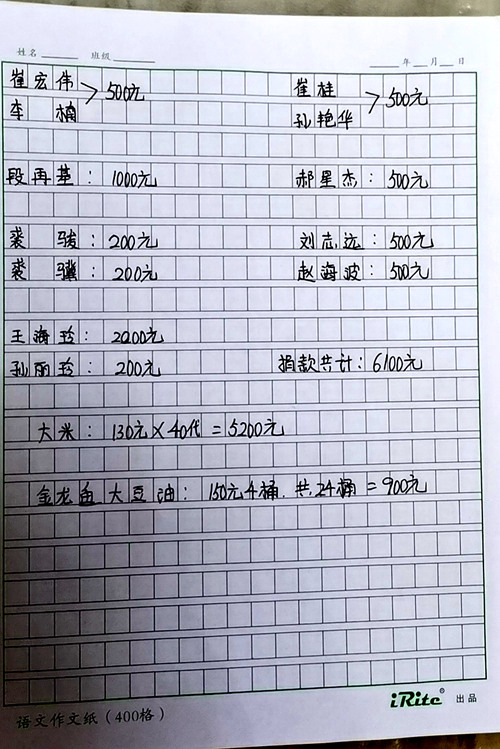 姓名 班级 年 月 日
崔宏伟 > 500元 崔桂 > 500元
李楠 孙艳华
段再基: 1000元 郝星杰: 500元
裘骏: 200元 刘志远: 500元
裘骥: 200元 赵海波: 500元
王海玲: 2000元
孙丽玲: 200元 捐款共计: 6100元
大米: 130元×40代=5200元
金龙鱼大豆油: 150元4桶. 共24桶=900元
iRite® 出品
语文作文纸(400格)